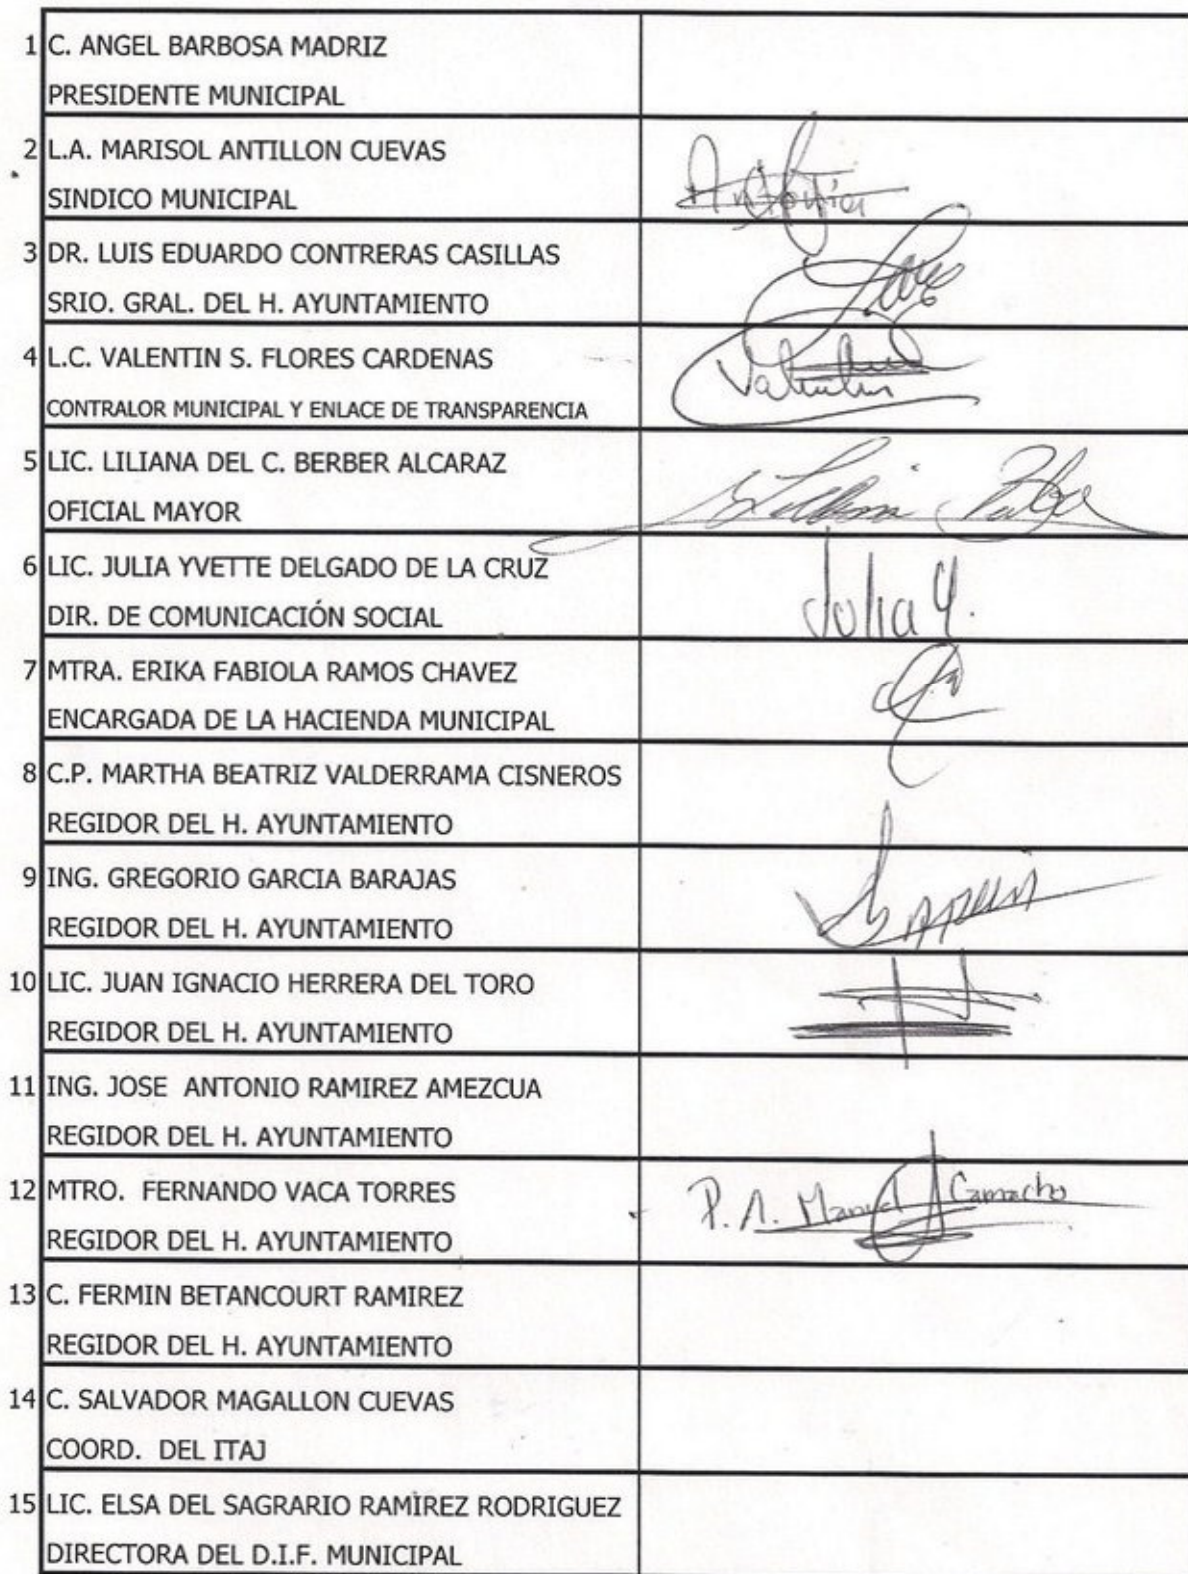 1 C. ANGEL BARBOSA MADRIZ
PRESIDENTE MUNICIPAL
2 L.A. MARISOL ANTILLON CUEVAS
SINDICO MUNICIPAL
3 DR. LUIS EDUARDO CONTRERAS CASILLAS
SRIO. GRAL. DEL H. AYUNTAMIENTO
4 L.C. VALENTIN S. FLORES CARDENAS
CONTRALOR MUNICIPAL Y ENLACE DE TRANSPARENCIA
5 LIC. LILIANA DEL C. BERBER ALCARAZ
OFICIAL MAYOR
6 LIC. JULIA YVETTE DELGADO DE LA CRUZ
Julia Y.
DIR. DE COMUNICACIÓN SOCIAL
7 MTRA. ERIKA FABIOLA RAMOS CHAVEZ
ENCARGADA DE LA HACIENDA MUNICIPAL
8 C.P. MARTHA BEATRIZ VALDERRAMA CISNEROS
REGIDOR DEL H. AYUNTAMIENTO
9 ING. GREGORIO GARCIA BARAJAS
REGIDOR DEL H. AYUNTAMIENTO
10 LIC. JUAN IGNACIO HERRERA DEL TORO
REGIDOR DEL H. AYUNTAMIENTO
11 ING. JOSE ANTONIO RAMIREZ AMEZCUA
REGIDOR DEL H. AYUNTAMIENTO
12 MTRO. FERNANDO VACA TORRES
P. A. Manuel Camacho
REGIDOR DEL H. AYUNTAMIENTO
13 C. FERMIN BETANCOURT RAMIREZ
REGIDOR DEL H. AYUNTAMIENTO
14 C. SALVADOR MAGALLON CUEVAS
COORD. DEL ITAJ
15 LIC. ELSA DEL SAGRARIO RAMÌREZ RODRIGUEZ
DIRECTORA DEL D.I.F. MUNICIPAL